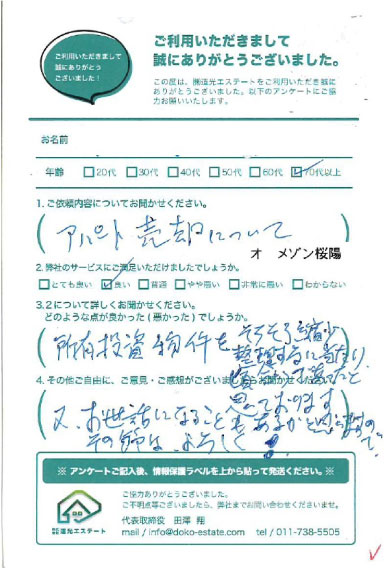 ご利用いただきまして
誠にありがとう
ございました!
ご利用いただきまして
誠にありがとうございました。
この度は、㈱道光エステートをご利用いただき誠に
ありがとうございました。以下のアンケートにご協
力お願いいたします。
お名前
年齢 □20代 □30代 □40代 □50代 □60代 ☑70代以上
1. ご依頼内容についてお聞かせください。
アパート売却について
オ メゾン桜陽
2. 弊社のサービスにご満足いただけましたでしょうか。
□とても良い ☑良い □普通 □やや悪い □非常に悪い □わからない
3. 2について詳しくお聞かせください。
どのような点が良かった(悪かった)でしょうか。
所有投資物件をそろそろ縮少
整理するに当り
思っております
4. その他ご自由に、ご意見・ご感想がございましたらお聞かせください。
又、お世話になることもあるかと思いますので
その節は、よろしく!
※ アンケートご記入後、情報保護ラベルを上から貼って発送ください。※
株式会社道光エステート
ご協力ありがとうございました。
ご不明点等ございましたら、弊社までお問い合わせくださいませ。
代表取締役 田澤 翔
mail / info@doko-estate.com tel / 011-738-5505